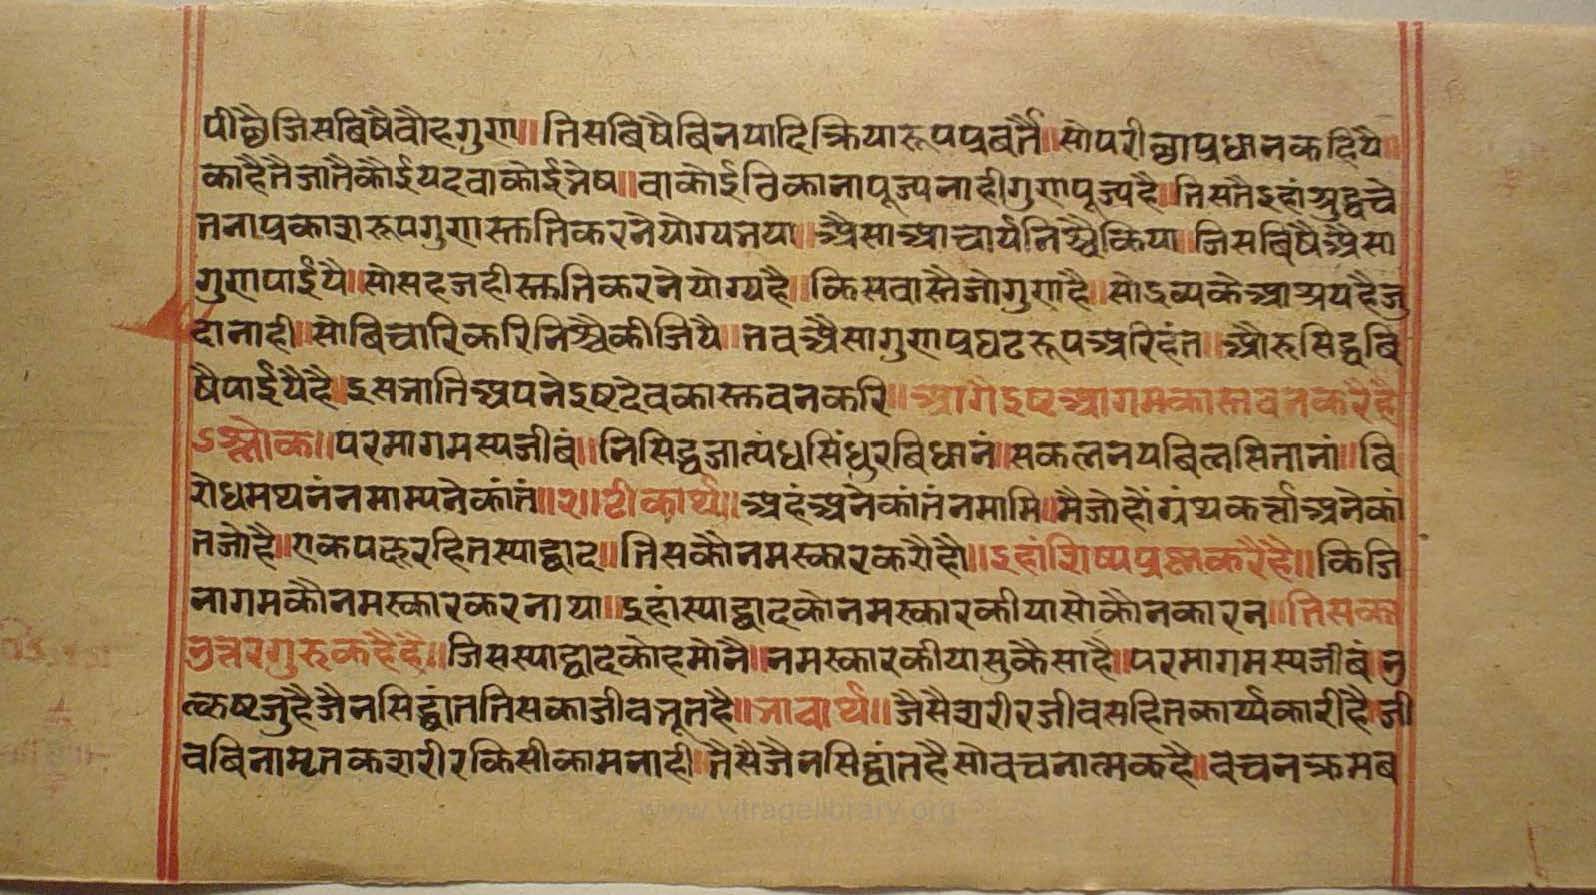 पीछैजिसबिषैवौहगुण॥तिसबिषैबिनयादिक्रियारूपप्रबर्तै॥सोपरीछाप्रधानकहियै॥
काहैतैजातैकोईयदवाकोईभेष॥वाकोईठिकानापूज्यनाहीगुणपूज्यहै॥तिसतैइहांशुद्धचे
तनाप्रकाशरूपगुणस्तुतिकरनेयोग्यभया॥ऐसाआचार्यनिश्चैकिया॥जिसबिषैऐसा
गुणपाईयै॥सोसहजहीस्तुतिकरनेयोग्यहै॥किसवास्तैजोगुणहै॥सोद्रव्यकेआश्रयहैजु
दानाही॥सोबिचारिकरिनिश्चैकीजियै॥तवऐसागुणप्रघटरूपअरिहंत॥औरूसिद्धबि
षैपाईयैहै॥इसभातिअपनेइष्टदेवकास्तवनकरि॥आगेइष्टआगमकास्तवनकरैहै
ऽश्लोक॥परमागमस्यजीबं॥निसिद्धजात्यंधसिंधुरबिधानं॥सकलनयबिलसितानां॥बि
रोधमथनंनमाम्यनेकांतं॥२॥टीकार्थ॥अहंअनेकांतंनमामि॥मैजोहौंग्रंथकर्त्ताअनेकां
तजोहै॥एकपक्षरहितस्याद्वाद॥तिसकौनमस्कारकरौहौ॥इहांशिष्यप्रश्नकरैहै॥किजि
नागमकौनमस्कारकरनाथा॥इहांस्याद्वादकोनमस्कारकीयासोकौनकारन॥तिसका
उत्तरगुरूकहैहै॥जिसस्याद्वादकोहमोनै॥नमस्कारकीयासुकैसाहै॥परमागमस्यजीबं॥उ
त्कृष्टजुहैजैनसिद्धांततिसकाजीवभूतहै॥भावार्थ॥जैसैशरीरजीवसहितकार्य्यकारीहै॥जी
वबिनामृतकशरीरकिसीकामनाही॥तैसैजैनसिद्धांतहैसोवचनात्मकहै॥वचनक्रमब
www.vitragelibrary.org